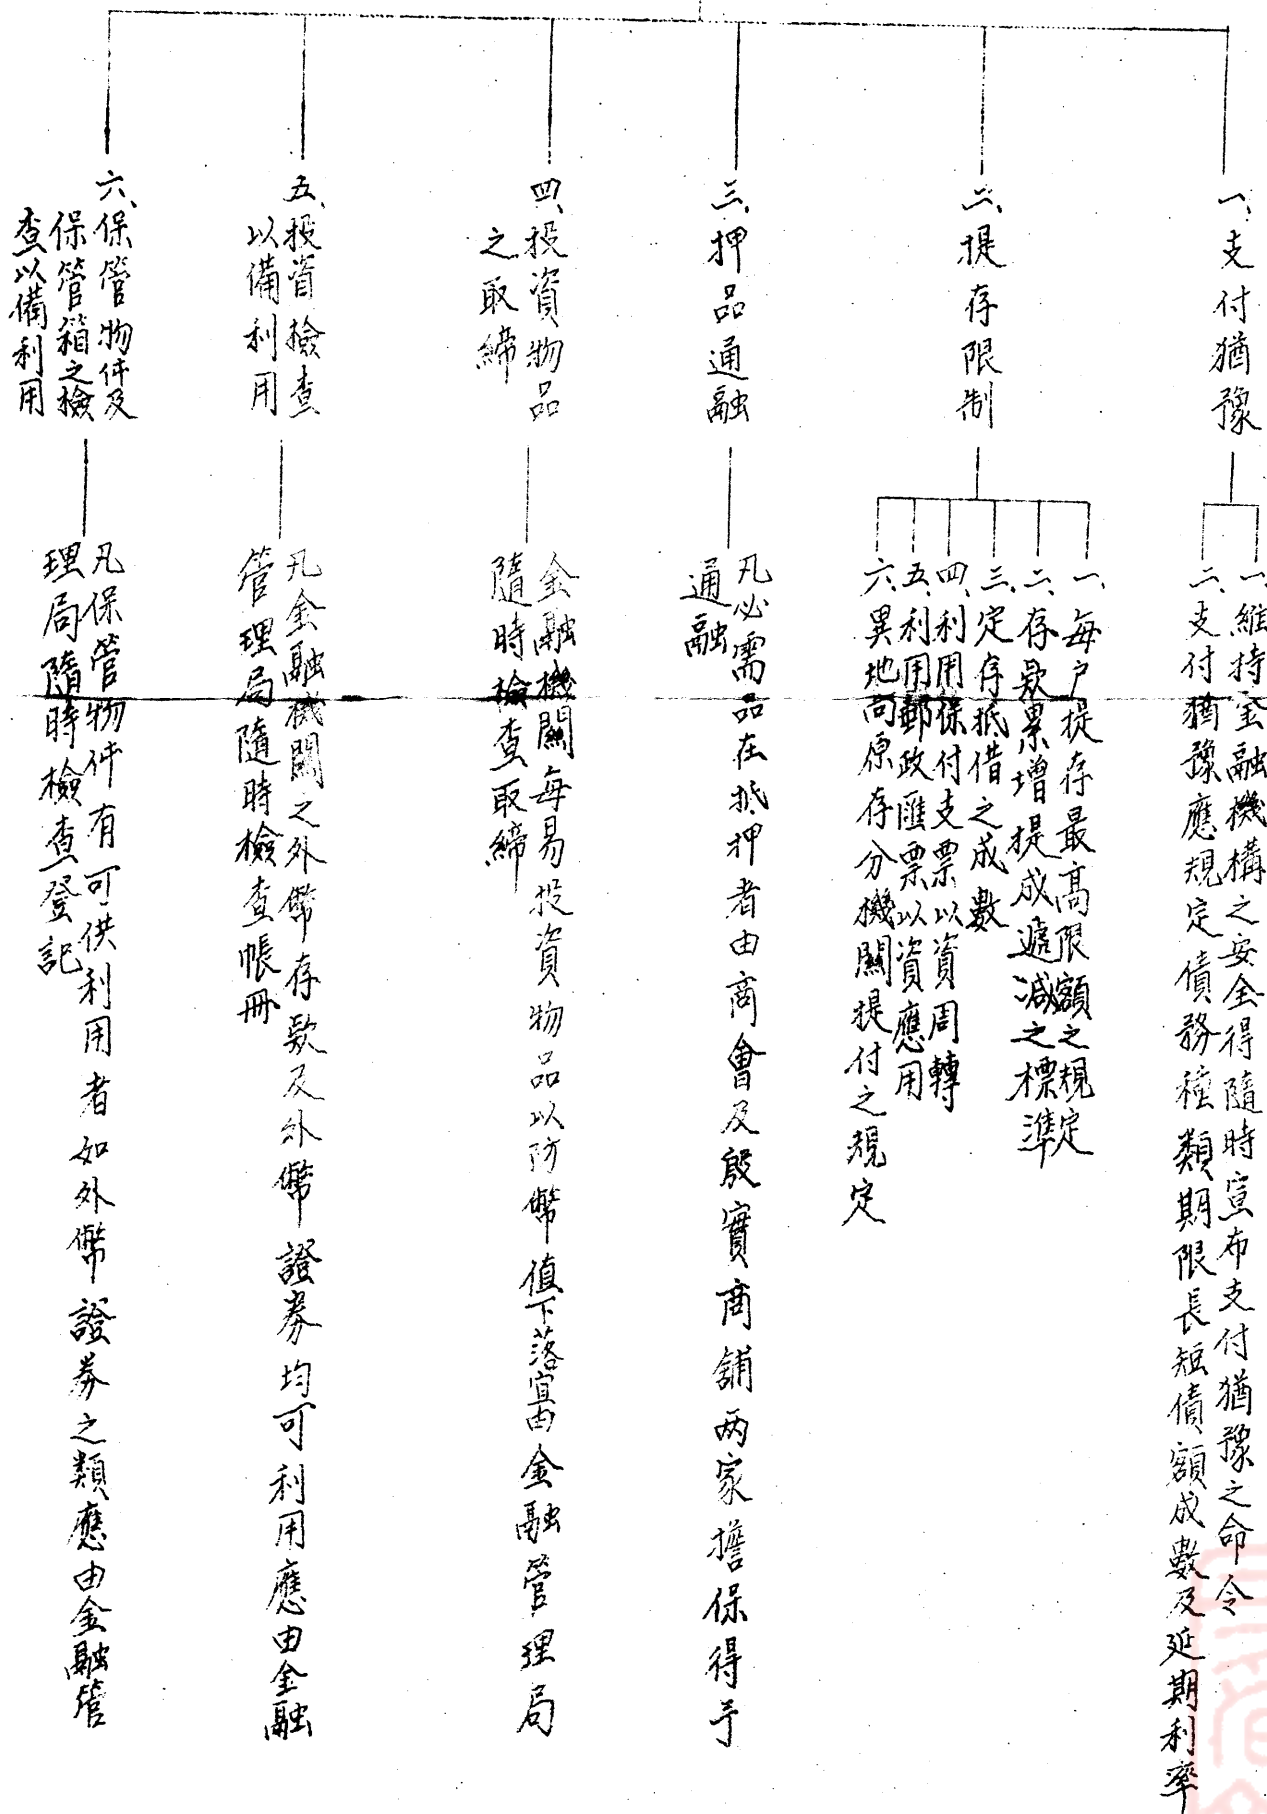 一、支付猶豫
一、維持金融機構之安全得隨時宣布支付猶豫之命令
二、支付猶豫應規定債務種類期限長短債額成數及延期利率
二、提存限制
一、每户提存最高限額之規定
二、存款累增提成遞減之標準
三、定存抵借之成數
四、利用保付支票以資周轉
五、利用郵政匯票以資應用
六、異地向原存分機關提付之規定
三、押品通融
凡必需品在抵押者由商會及殷實商舖两家擔保得予
通融
四、投資物品
之取締
金融機關每易投資物品以防幣值下落宜由金融管理局
隨時檢查取締
五、投資檢查
以備利用
凡金融機關之外幣存款及外幣證券均可利用應由金融
管理局隨時檢查帳冊
六、保管物件及
保管箱之檢
查以備利用
凡保管物件有可供利用者如外幣證券之類應由金融管
理局隨時檢查登記